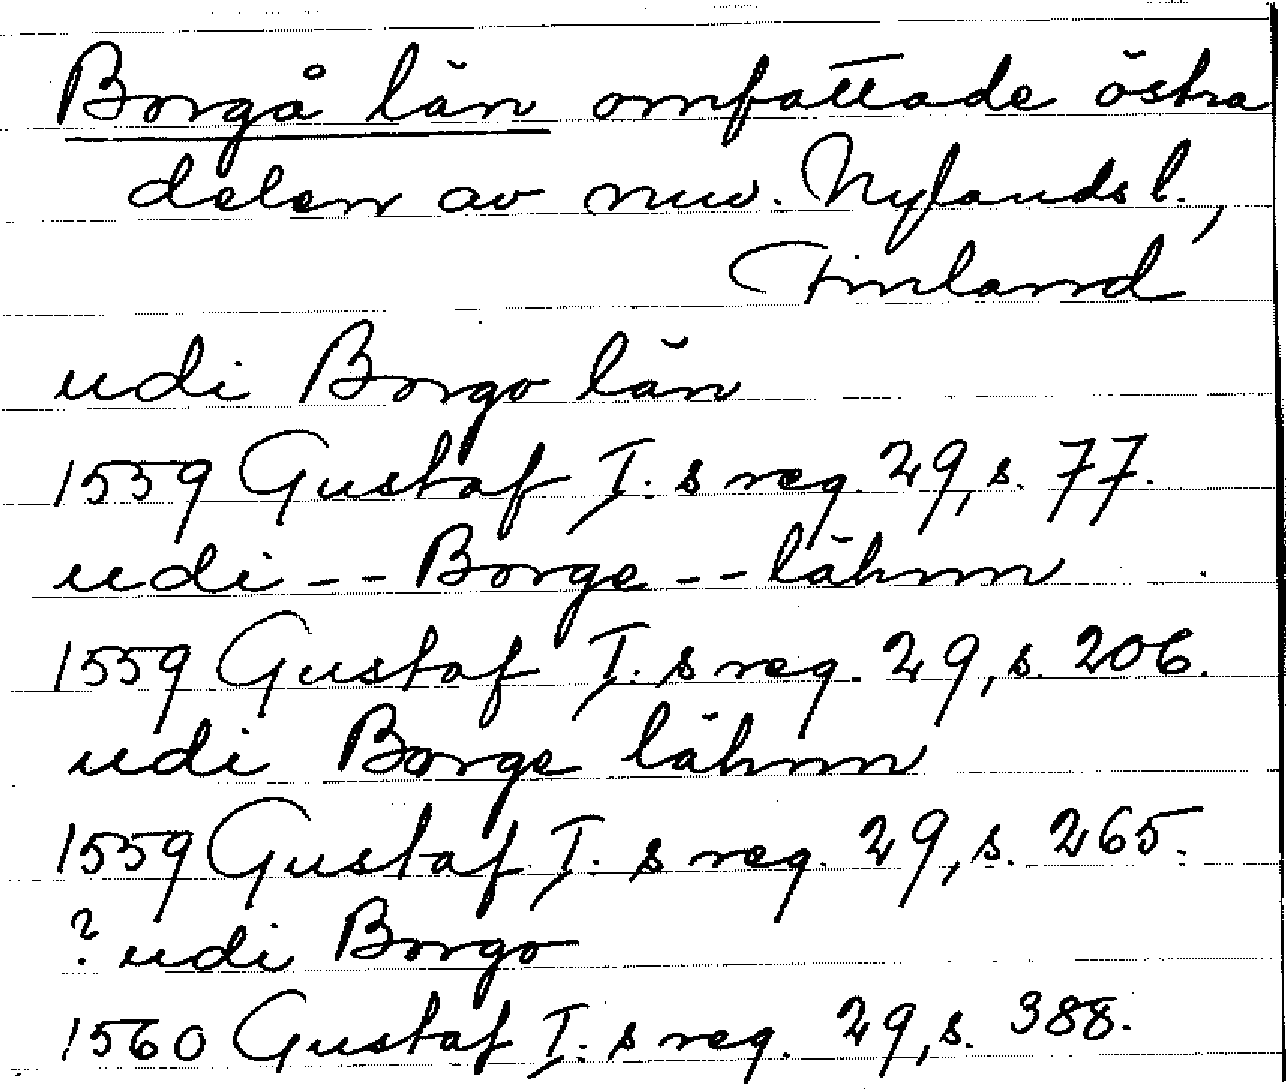 Borgå län omfattade östra
delen av nuv. Nylands l.,
Finland
udi Borgo län
1559 Gustaf I:s reg. 29, s. 77.
udi -- Borge -- lähnn
1559 Gustaf I:s reg. 29, s. 206.
udi Borge lähnn
1559 Gustaf I:s reg. 29, s. 265.
? udi Borgo
1560 Gustaf I:s reg. 29, s. 388.